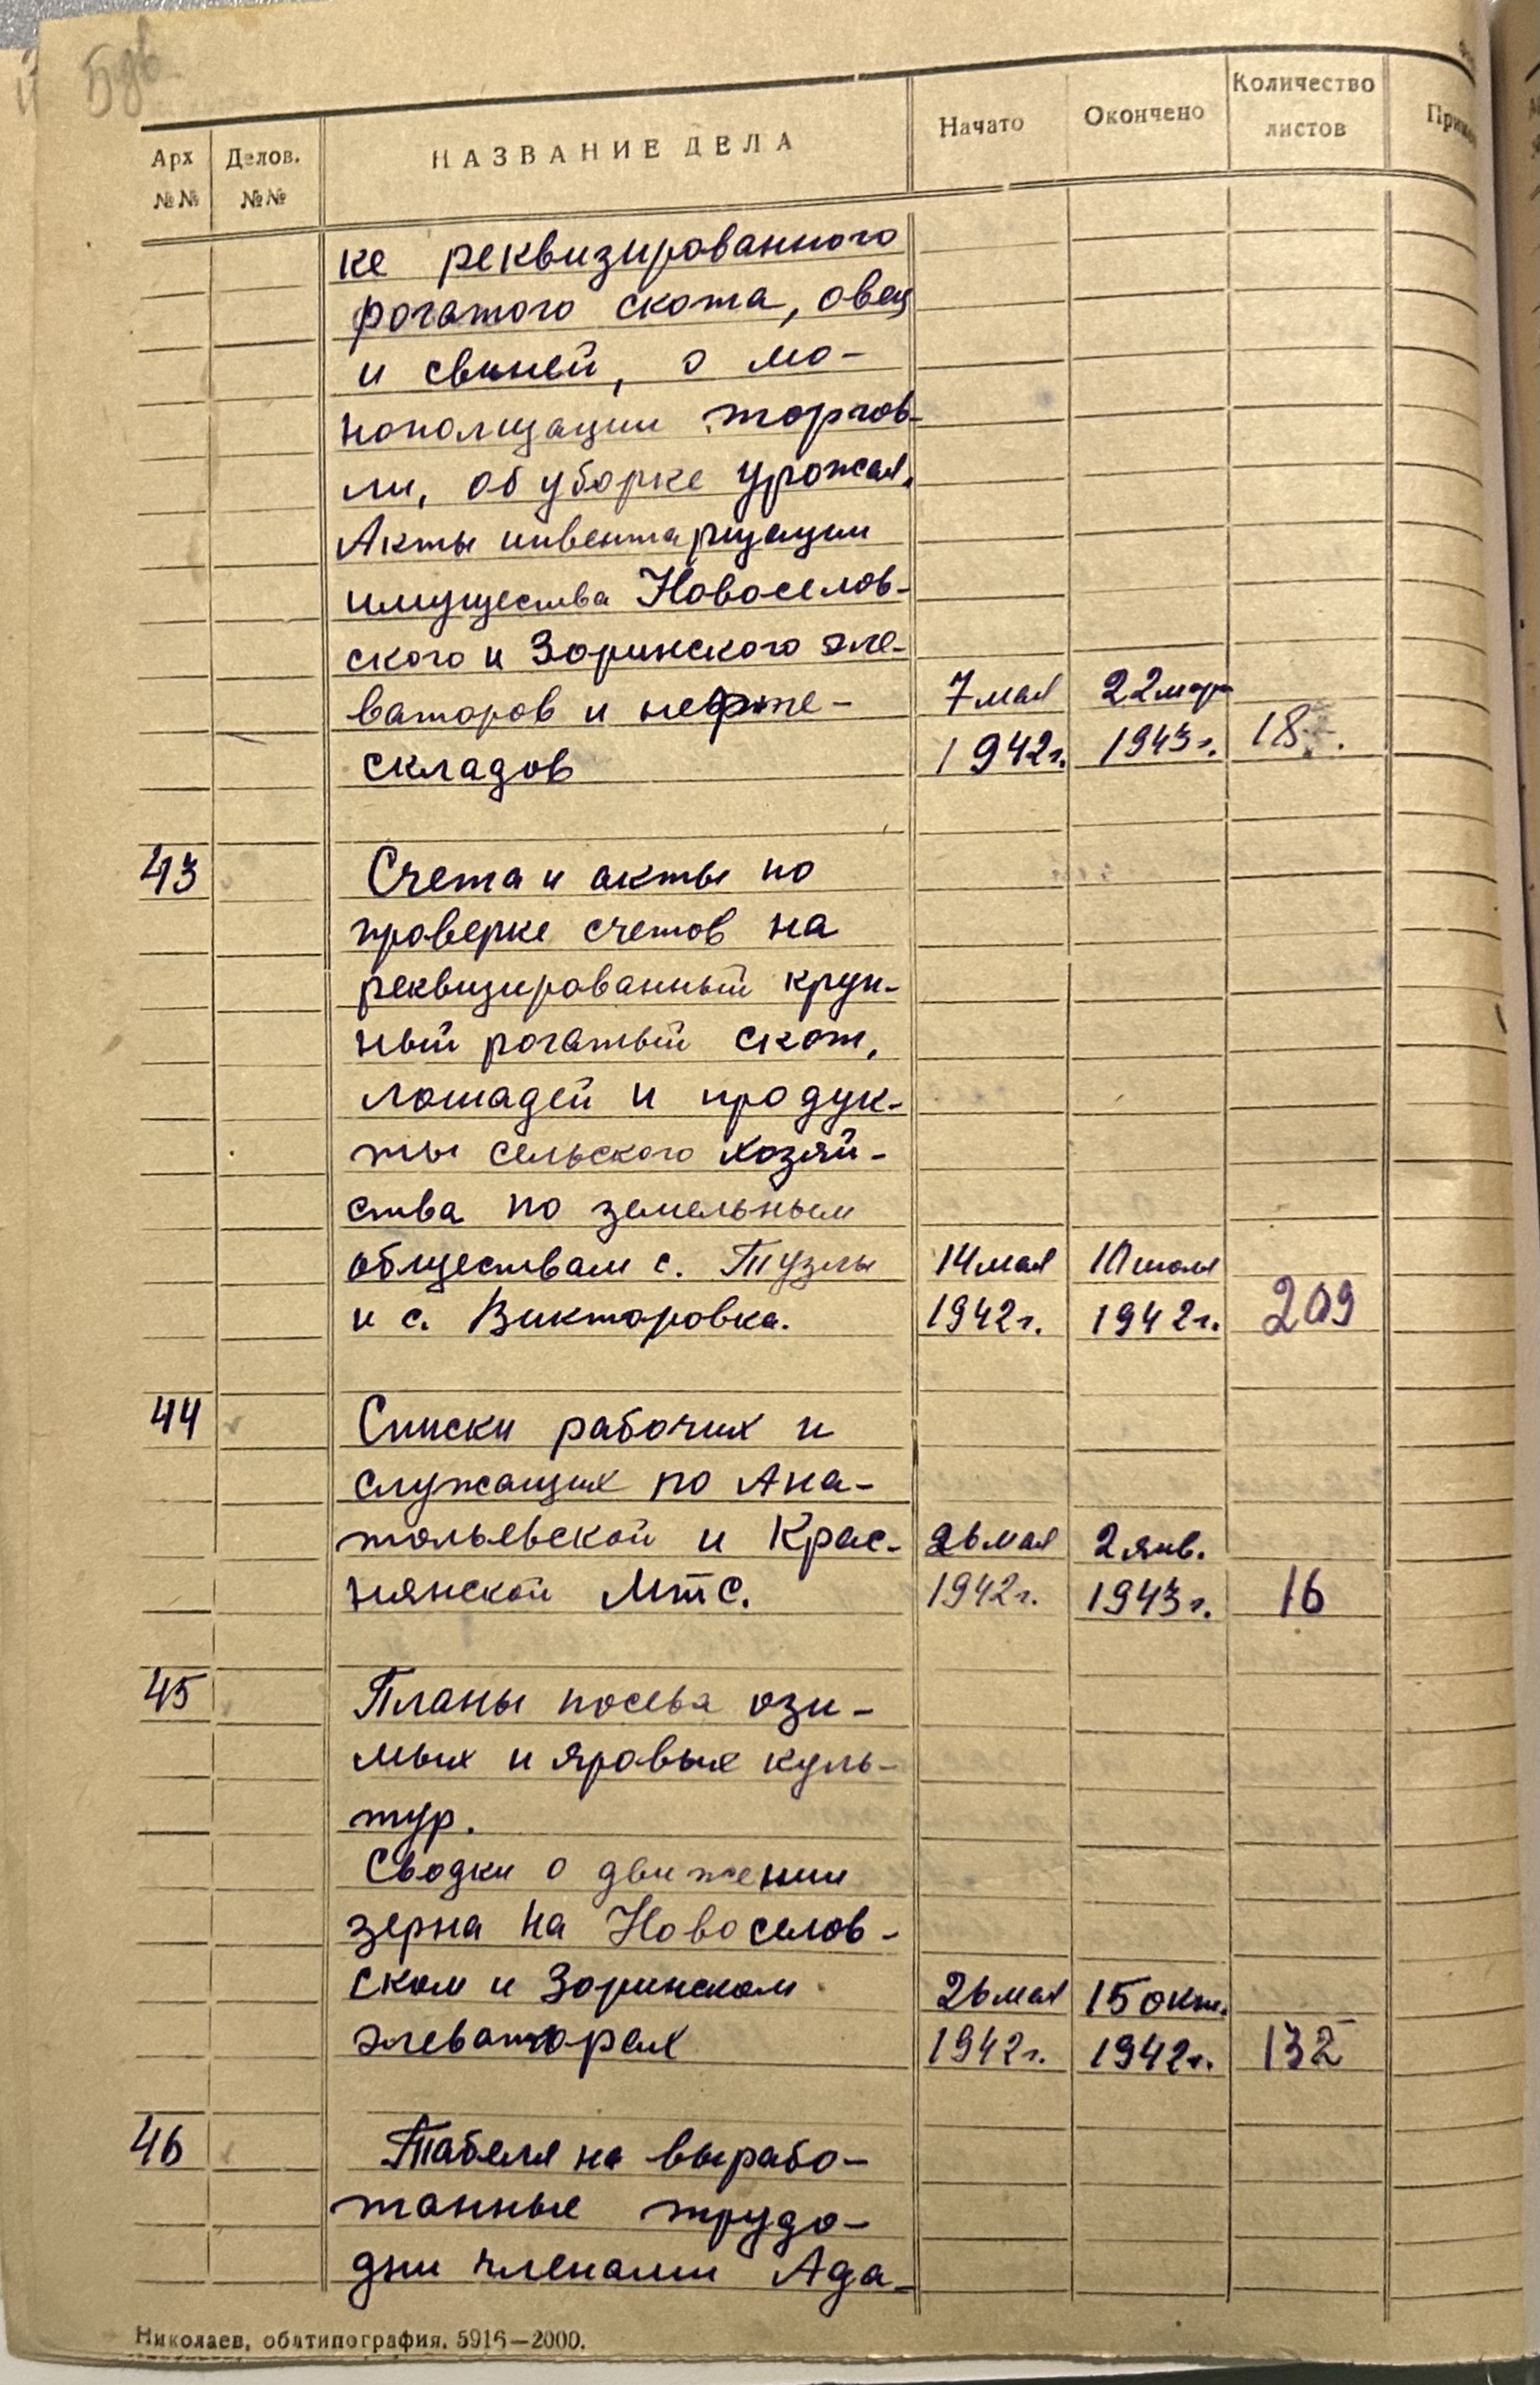 Арх №№ | Делов. №№ | НАЗВАНИЕ ДЕЛА | Начато | Окончено | Количество листов
ке реквизированного
рогатого скота, овец
и свиней, о мо-
нополизации торгов-
ли, об уборке урожая.
Акты инвентаризации
имущества Новоселов-
ского и Зоринского эле-
ваторов и нефте- | 7 мая | 22 мар
складов | 1942 г. | 1943 г. | 18
43 | Счета и акты по
проверке счетов на
реквизированный круп-
ный рогатый скот,
лошадей и продук-
ты сельского хозяй-
ства по земельным
обществам с. Тузлы | 14 мая | 10 июля
и с. Викторовка. | 1942 г. | 1942 г. | 209
44 | Списки рабочих и
служащих по Ана-
тольевской и Крас- | 26 мая | 2 янв.
нянской МТС. | 1942 г. | 1943 г. | 16
45 | Планы посева ози-
мых и яровых куль-
тур.
Сводки о движении
зерна на Новоселов-
ском и Зоринском | 26 мая | 15 окт.
элеваторах | 1942 г. | 1942 г. | 132
46 | Табеля на вырабо-
танные трудо-
дни членами Ада-
Николаев, обатипография. 5916—2000.